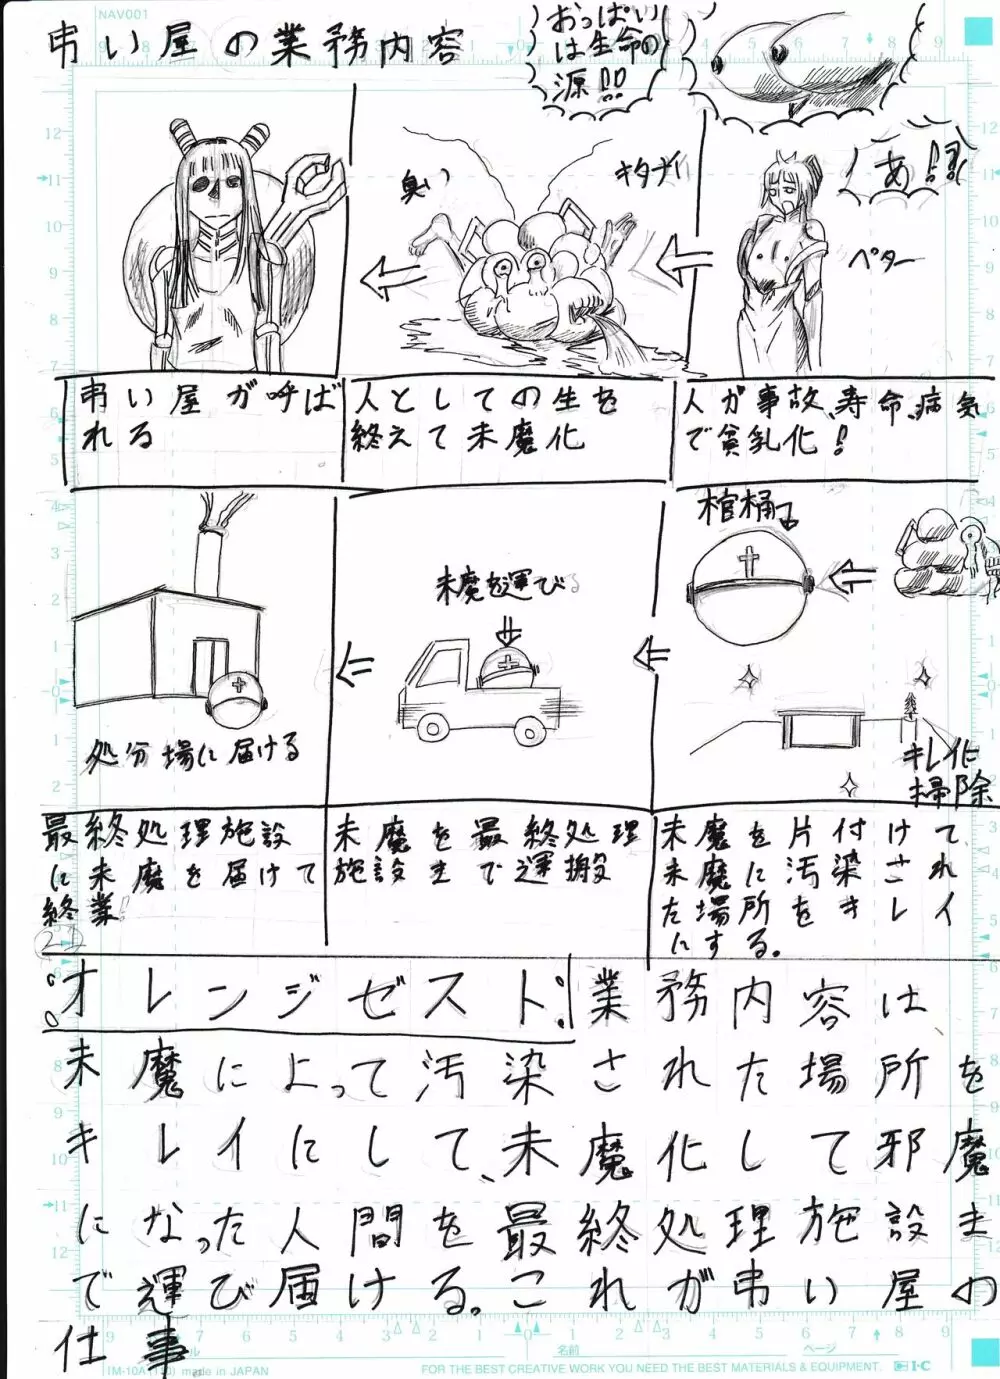 NAV001
弔い屋の業務内容
おっぱい
は生命の
源!!
あ!!
ペター
キタナイ
臭い
人が事故、寿命、病気
で貧乳化!
人としての生を
終えて未魔化
弔い屋が呼ば
れる
棺桶
キレイに
掃除
未魔を運び
処分場に届ける
未魔を片付けて
未魔に汚染され
た場所をキレイ
にする。
未魔を最終処理
施設まで運搬
最終処理施設
に未魔を届けて
終業!
:オレンジゼスト:業務内容は
未魔によって汚染された場所を
キレイにして、未魔化して邪魔
になった人間を最終処理施設ま
で運び届ける。これが弔い屋の
仕事
made in JAPAN
名前
ページ
FOR THE BEST CREATIVE WORK YOU NEED THE BEST MATERIALS & EQUIPMENT.
I·C